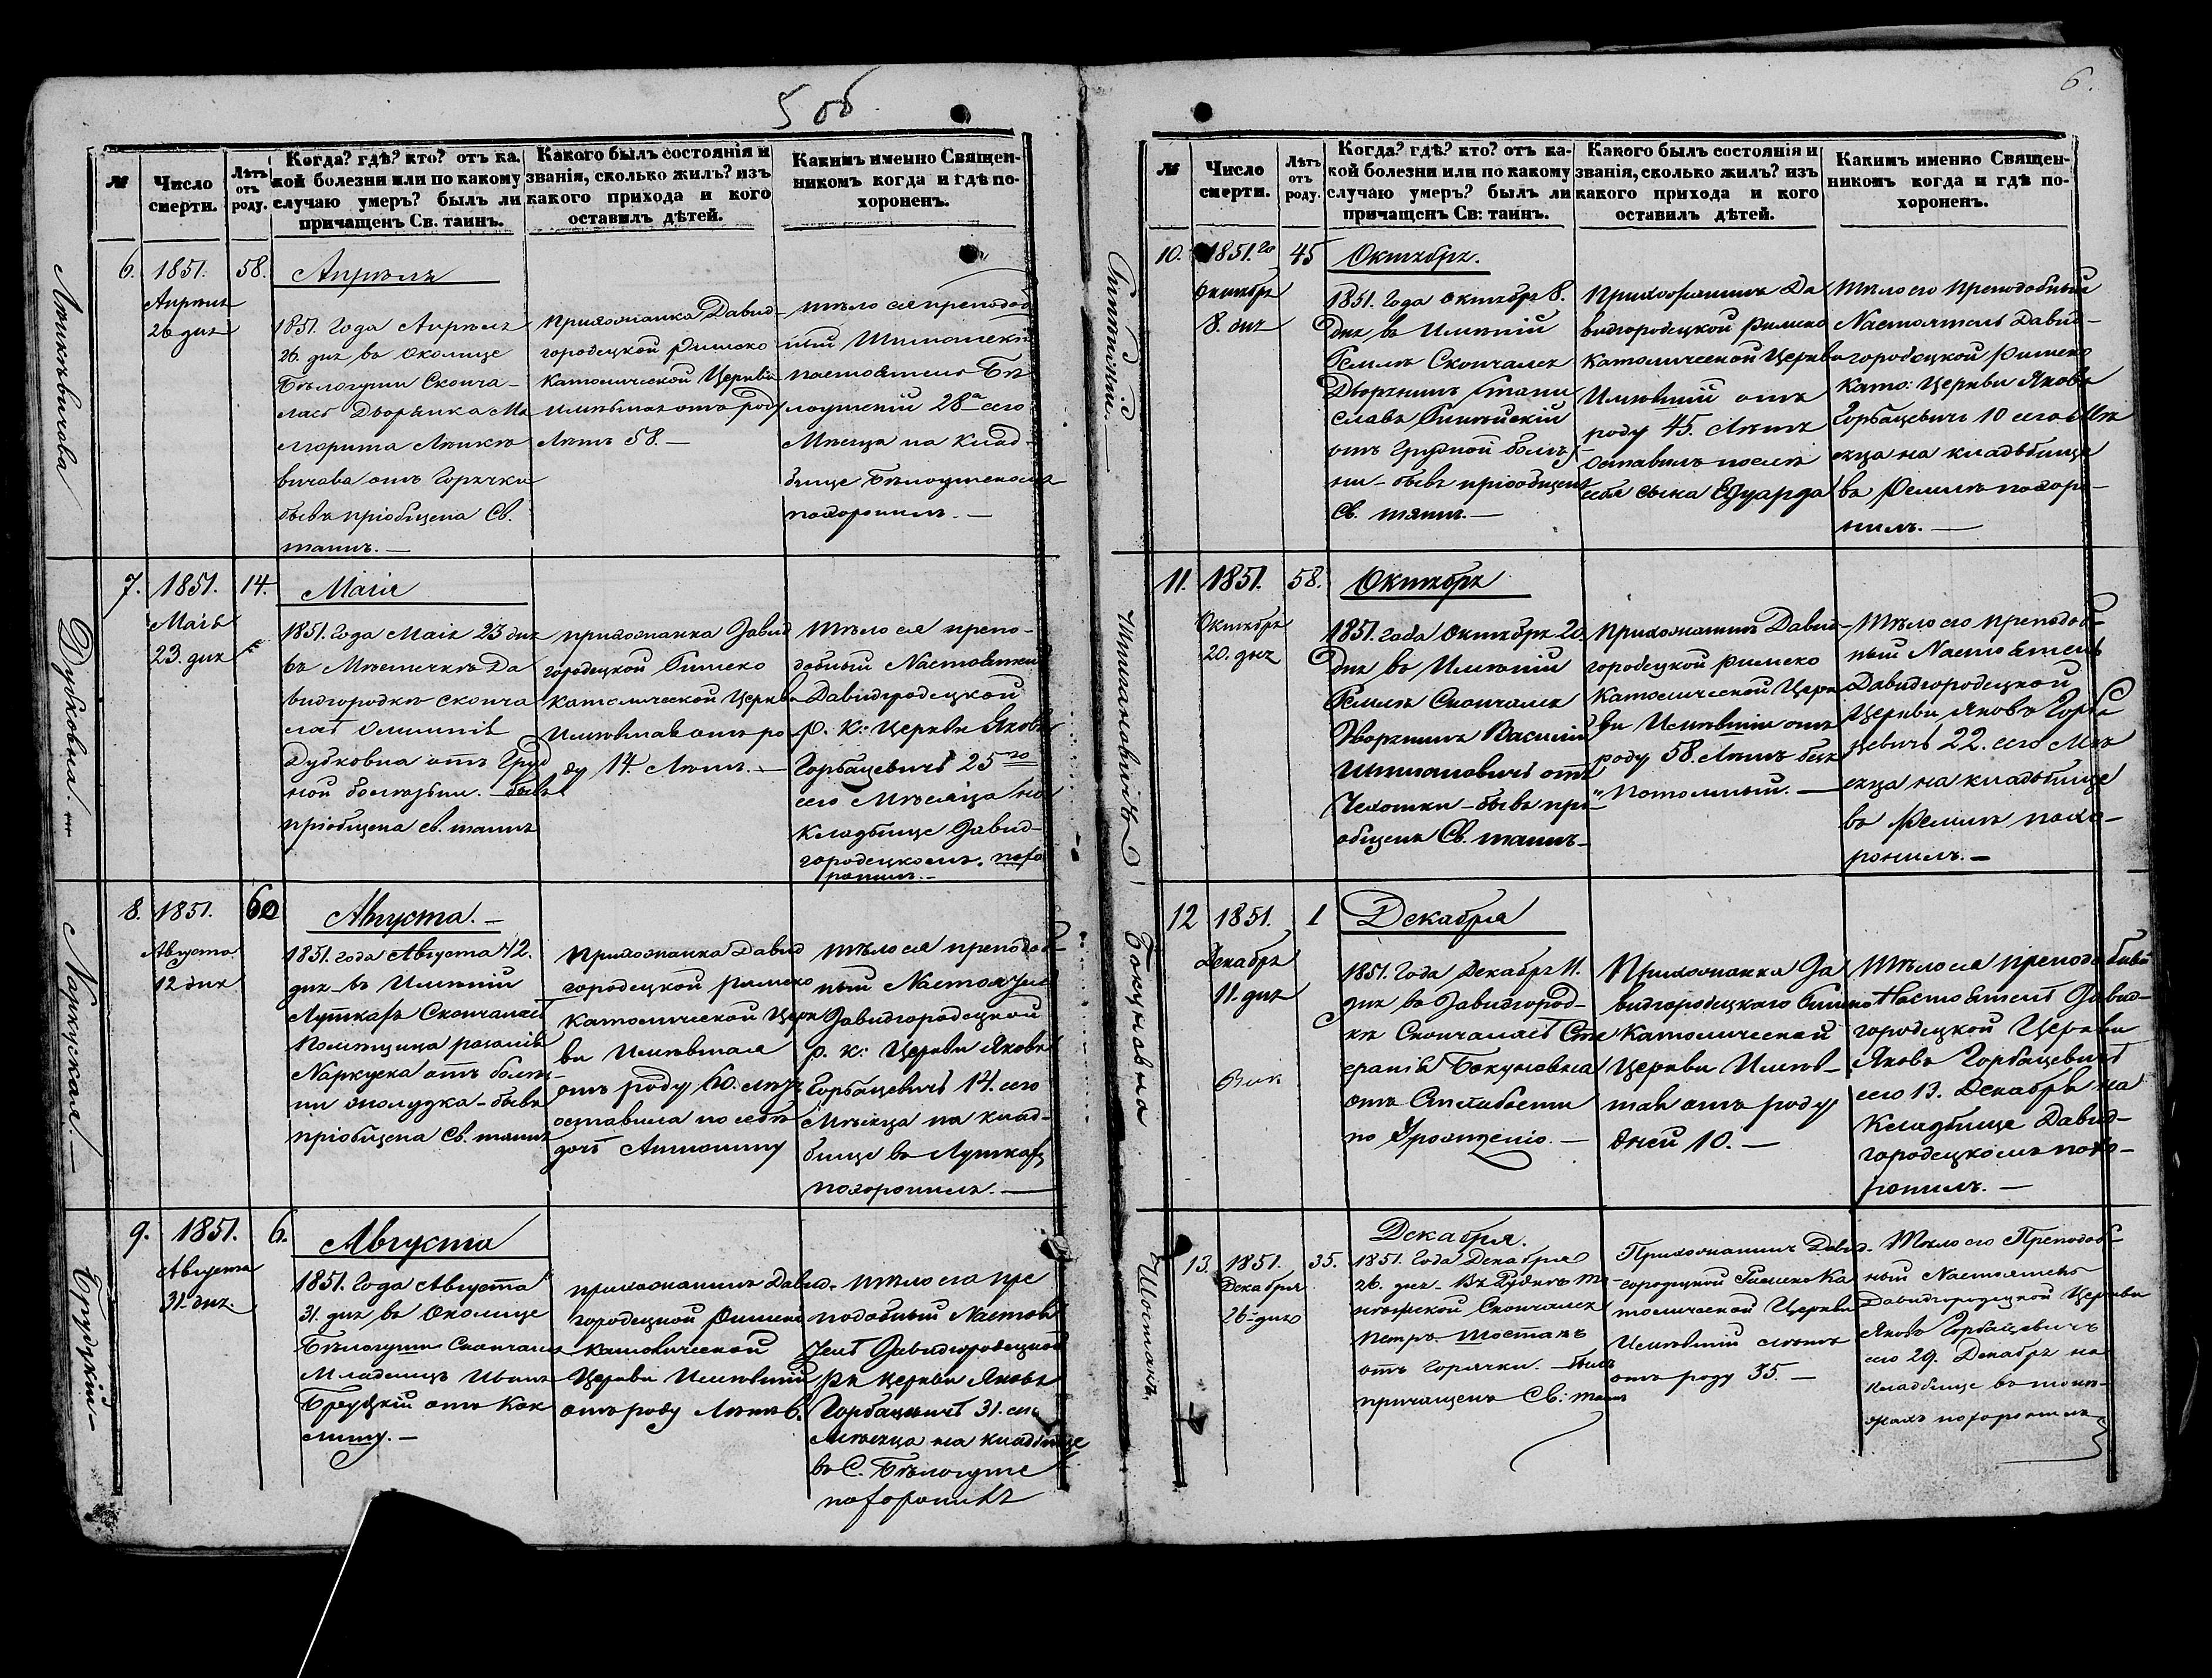 5 об
№
Число
смерти.
Лѣтъ
отъ
роду.
Когда? гдѣ? кто? отъ ка-
кой болезни или по какому
случаю умеръ? былъ ли
причащенъ Св. таинъ.
Какого былъ состоянія и
званія, сколько жилъ? изъ
какого прихода и кого
оставилъ дѣтей.
Какимъ именно Священ-
никомъ когда и гдѣ по-
хороненъ.
6.
1851.
Апрѣля
26 дня
58.
Апрѣль
1851. Года Апрѣля
26. дня въ околице
Бѣлогуши Сконча-
лась Дворянка Ма
ргарита
вичова отъ Горячки
бывъ пріобщена Св.
таинъ. —
Прихожанка Давид-
городецкой Римско
Католической Церкви
имѣвшая отъ роду
Лѣтъ 58. —
тѣло ея преподоб
ный
настоятель Бѣ
28а сего
Мѣсяца на клад-
бище
похоронилъ. —
7.
1851.
Маія
23. дня
14.
Маія
1851. Года Маія 23 дня
въ Мѣстечкѣ Да
видгородкѣ сконча
лась
Дубковна отъ Груд
ной болѣзни. — бывъ
пріобщена св. таинъ
прихожанка Давид
городецкой Римско
католической Церкви
Имѣвшая отъ ро
ду 14. Лѣтъ. —
Тѣло ея препо-
добный Настоятель
Давидгородецкой
Р. К: Церкви Яковъ
Горбацевичъ 25го
сего Мѣсяца на
Кладбище Давид-
городецкомъ. похо
ронилъ. —
Дубковна. —
8.
1851.
Августа
12 дня
60
Августа. —
1851. года Августа 12.
дня въ Имѣніи
Скончалась
Помѣщица
Наркуска отъ болѣз-
ни желудка — бывъ
пріобщена Св. таинъ
Прихожанка Давид
городецкой Римско
Католической Церк
ви Имѣвшая
отъ роду 60. лѣтъ
оставила по себѣ
дочь Антонину
тѣло ея преподоб-
ный Настоятель
Давидгородецкой
Р. К: Церкви Яковъ
Горбацевичъ 14. сего
Мѣсяца на клад-
бище въ
похоронилъ. —
Наркуская. —
9.
1851.
Августа
31 дня.
6.
Августа
1851. Года Августа
31. дня въ Околице
Бѣлогуши Скончался
Младенецъ Иванъ
Бруцкій отъ Кок
лишу. —
прихожанинъ Давид-
городецкой Римско
католической
Церкви Имѣвшій
отъ роду Лѣтъ 6.
тѣло его пре
подобный Настоя
тель Давидгородецкой
РК Церкви Яковъ
Горбацевичъ 31. сего
Мѣсяца на кладбище
въ С. Бѣлогуше
похоронилъ
Бруцкій —
6.
№
Число
смерти.
Лѣтъ
отъ
роду.
Когда? гдѣ? кто? отъ ка-
кой болезни или по какому
случаю умеръ? былъ ли
причащенъ Св: таинъ.
Какого былъ состоянія и
званія, сколько жилъ? изъ
какого прихода и кого
оставилъ дѣтей.
Какимъ именно Священ-
никомъ когда и гдѣ по-
хороненъ.
10.
1851.го
Октября
8. дня
45
Октября.
1851. Года Октября 8.
дня въ Имѣніи
Скончался
Дворянинъ Стани
славъ
отъ Грудной болѣз-
ни — бывъ пріобщенъ
Св. таинъ. —
Прихожанинъ Да
видгородецкой Римско
Католической Церкви
Имѣвшій отъ
роду 45. Лѣтъ
оставилъ послѣ
себя сына Едуарда
Тѣло его преподобный
Настоятель Давид-
городецкой Римско
Като: Церкви Яковъ
Горбацевичъ 10 сего Мѣ
сяца на кладбище
въ похоро-
нилъ. —
11.
1851.
Октября
20. дня
58.
Октября
1851. Года Октября 20.
дня въ Имѣніи
Скончался
Дворянинъ Василій
отъ
Чехотки — бывъ прі-
общенъ Св. таинъ —
прихожанинъ Давид-
городецкой Римско
Католической Церк
ви Имѣвшій отъ
роду 58. Лѣтъ безъ
Потомный. —
Тѣло его преподоб-
ный Настоятель
Давидгородецкой
Церкви Яковъ Горба
цевичъ 22. сего Мѣ
сяца на кладбище
въ похо-
ронилъ. —
12
1851.
Декабря
11. дня
1
Декабря
1851. Года Декабря 11.
дня въ Давидгород-
кѣ Скончалась Сте
фанія Бокуновна
отъ Слабости
по Урожденію. —
Прихожанка Да
видгородецкаго Римско
Католической
Церкви Имѣв-
шая отъ роду
дней 10. —
Тѣло ея преподобный
Настоятель Давид-
городецкой Церкви
Яковъ Горбацевичъ
сего 13. Декабря на
Кладбище Давид-
городецкомъ похо-
ронилъ. —
Бокуновна
13.
1851.
Декабря
26 дня
35.
Декабря.
1851. Года Декабря
26. дня
Скончался
Петръ Шостакъ
отъ горячки. — былъ
причащенъ Св: таинъ
Прихожанинъ Давид-
городецкой Римско Ка
толической Церкви
Имѣвшій лѣтъ
отъ роду 35. —
Тѣло его Преподоб-
ный Настоятель
Давидгородецкой Церкви
Яковъ Горбацевичъ
сего 29. Декабря на
Кладбище
похоронилъ
Шостакъ